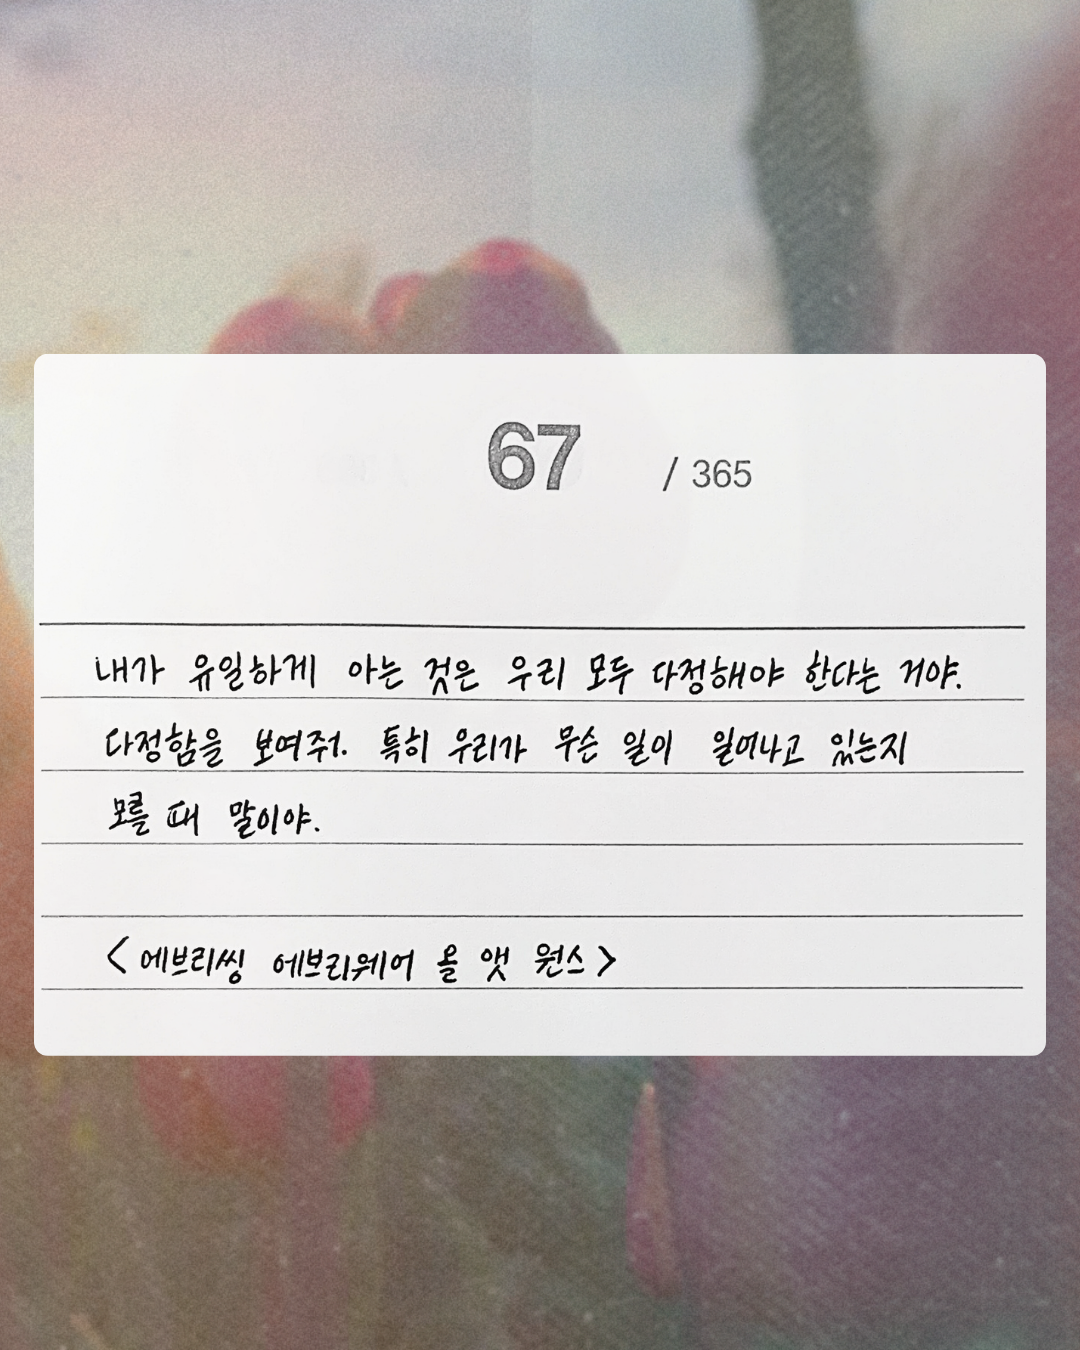 67 / 365
내가 유일하게 아는 것은 우리 모두 다정해야 한다는 거야.
다정함을 보여줘. 특히 우리가 무슨 일이 일어나고 있는지
모를 때 말이야.
<에브리씽 에브리웨어 올 앳 원스>